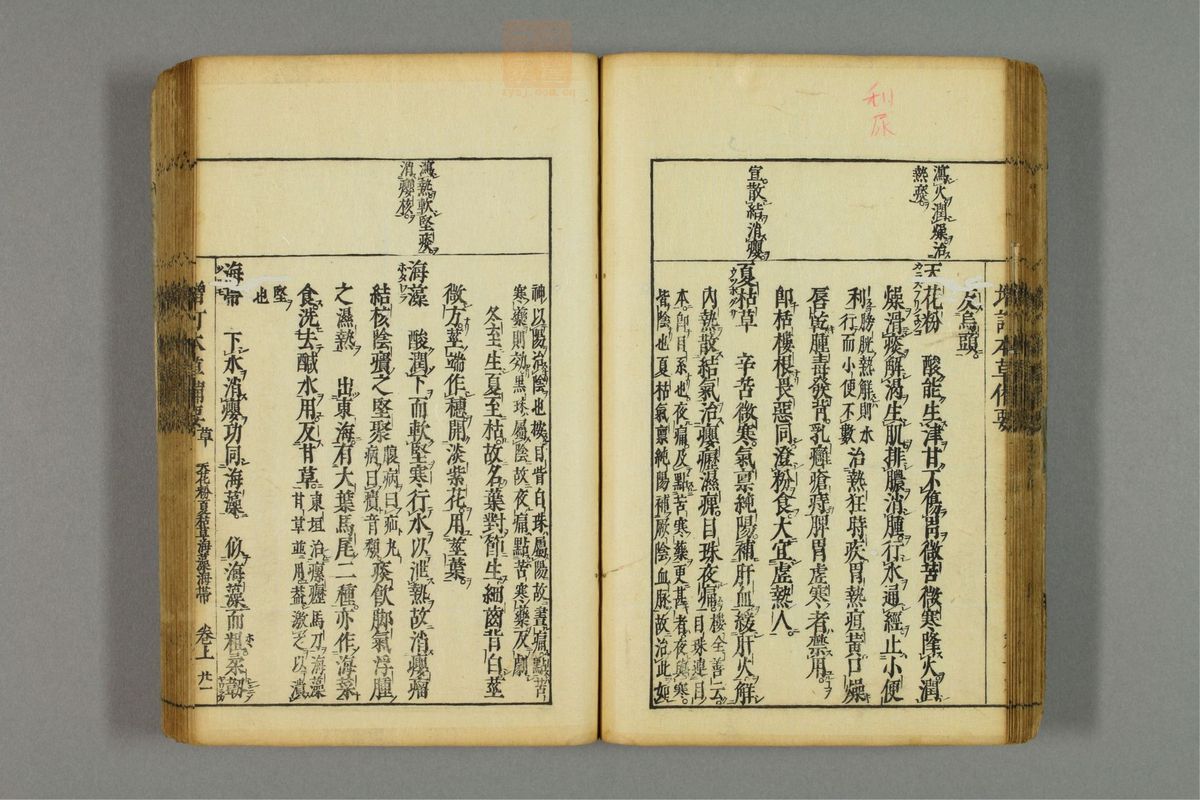 利
尿
增訂本草備要
瀉火潤燥治
熱痰
宣散結消癭
反烏頭
天花粉 酸能生津甘不傷胃微苦微寒降火潤
燥滑痰解渴生肌排膿消腫行水通經止小便
利膀胱熱解則水
行而小便不數
治熱狂時疾胃熱疸黃口燥
唇乾腫毒發背乳癰瘡痔脾胃虛寒者禁用
即栝樓根畏惡同澄粉食大宜虛熱人
夏枯草 辛苦微寒氣稟純陽補肝血緩肝火解
內熱散結氣治癭癧濕痺目珠夜痛
樓全善云
目珠連目
本即目系也夜痛及點苦寒藥更甚者夜與寒
皆陰也夏枯氣稟純陽補厥陰血脈故治此如
瀉熱軟堅痰
消癭核
神以陽治陰也按目昔白珠屬陽故晝痛點苦
寒藥則効黑珠屬陰故夜痛點苦寒藥反劇
冬至生夏至枯故名葉對節生細齒背白莖
微方莖端作穗開淡紫花用莖葉
海藻 酸潤下而軟堅寒行水以泄熱故消癭瘤
結核陰㿉之堅聚
腹病曰疝丸
病曰㿉音頹
痰飲脚氣浮腫
之濕熱 出東海有大葉馬尾二種亦作海菜
食洗去鹹水用反甘草
東垣治瘰癧馬刀海藻
甘草並用蓋激之以潰
堅
也
海帶 下水消癭功同海藻 似海藻而粗柔韌
增訂本草備要 草 天花粉夏枯草海藻海帶 卷上 廿一